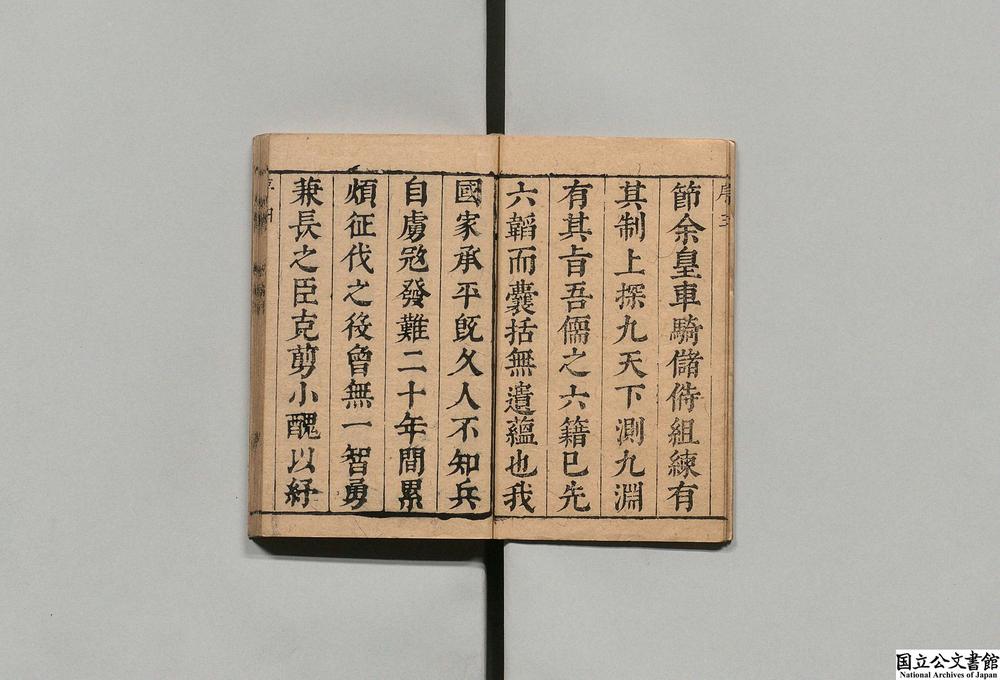 序三
節余皇車騎儲偫組練有
其制上探九天下測九淵
有其旨吾儒之六籍已先
六韜而囊括無遺蘊也我
國家承平旣久人不知兵
自虜寇發難二十年間累
煩征伐之役曾無一智勇
兼長之臣克剪小醜以紓
国立公文書館
National Archives of Japan